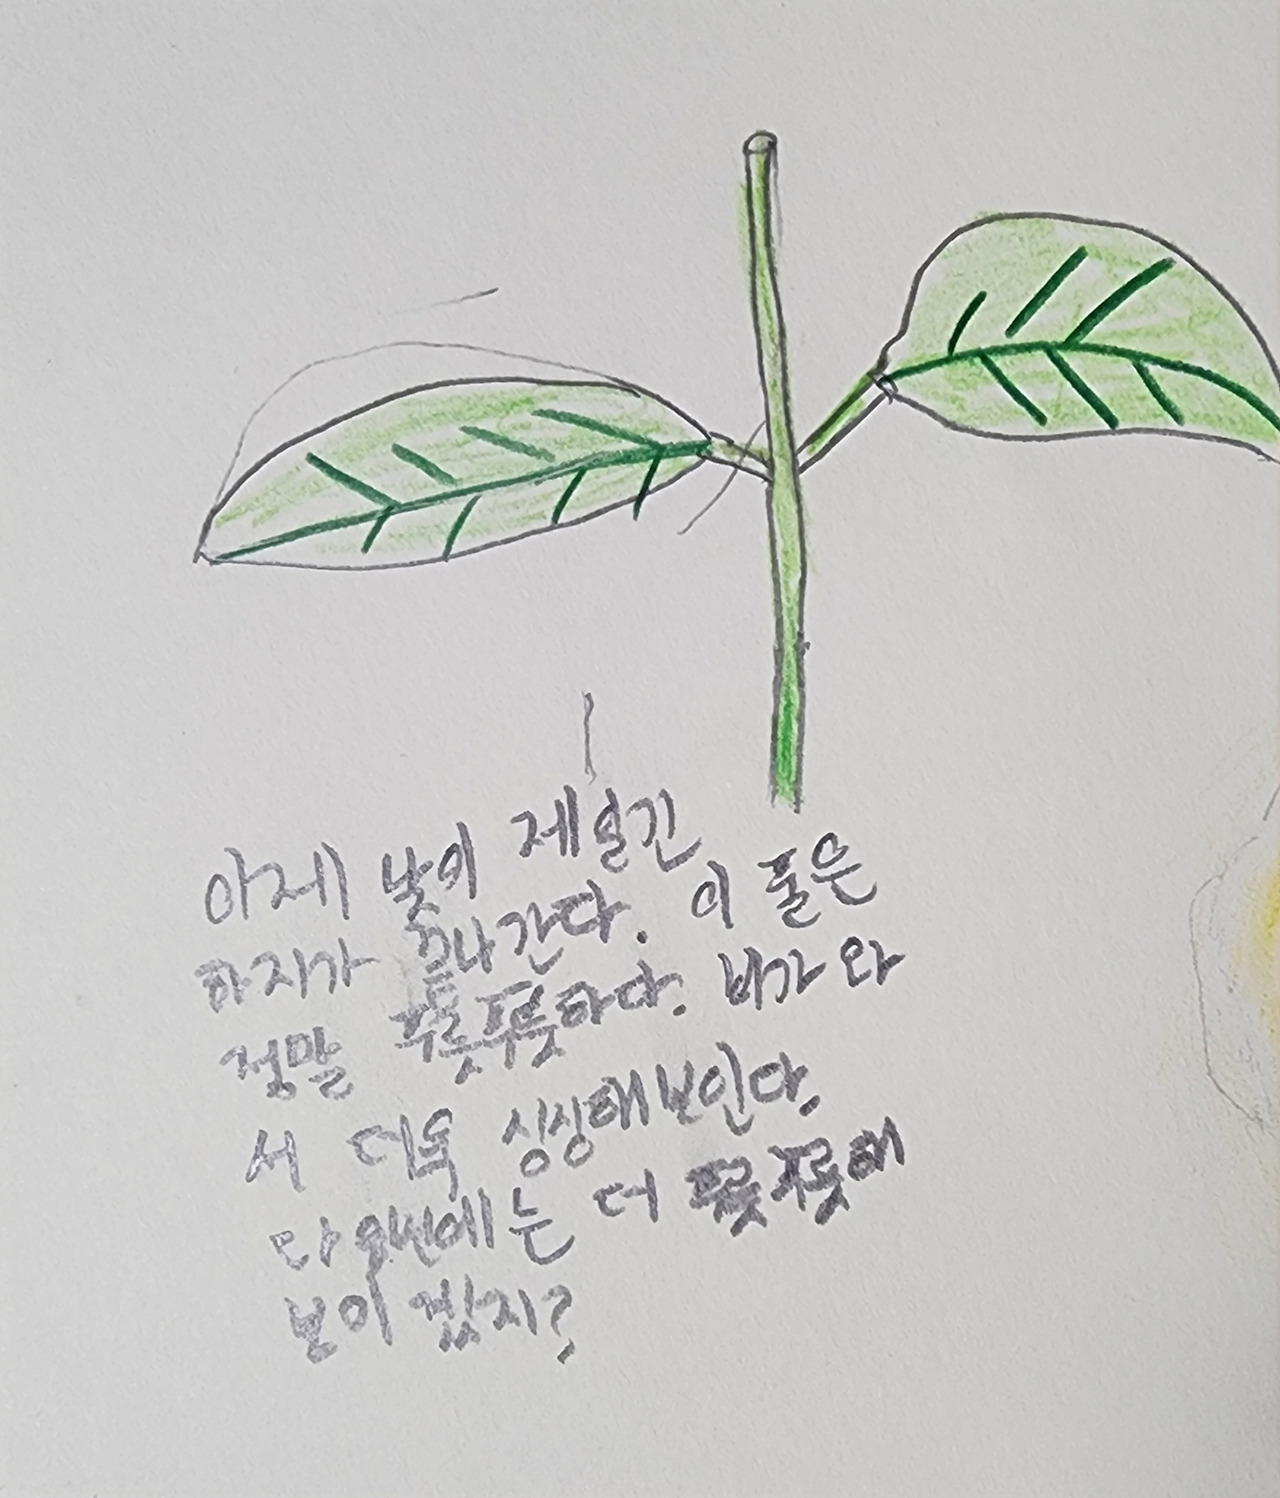 아제 낮이 제일긴
하지가 끝나간다. 이 풀은
정말 푸릇푸릇하다. 비가 와
서 더욱 싱싱해보인다.
다음번에는 더 푸릇푸릇해
보이겠지?